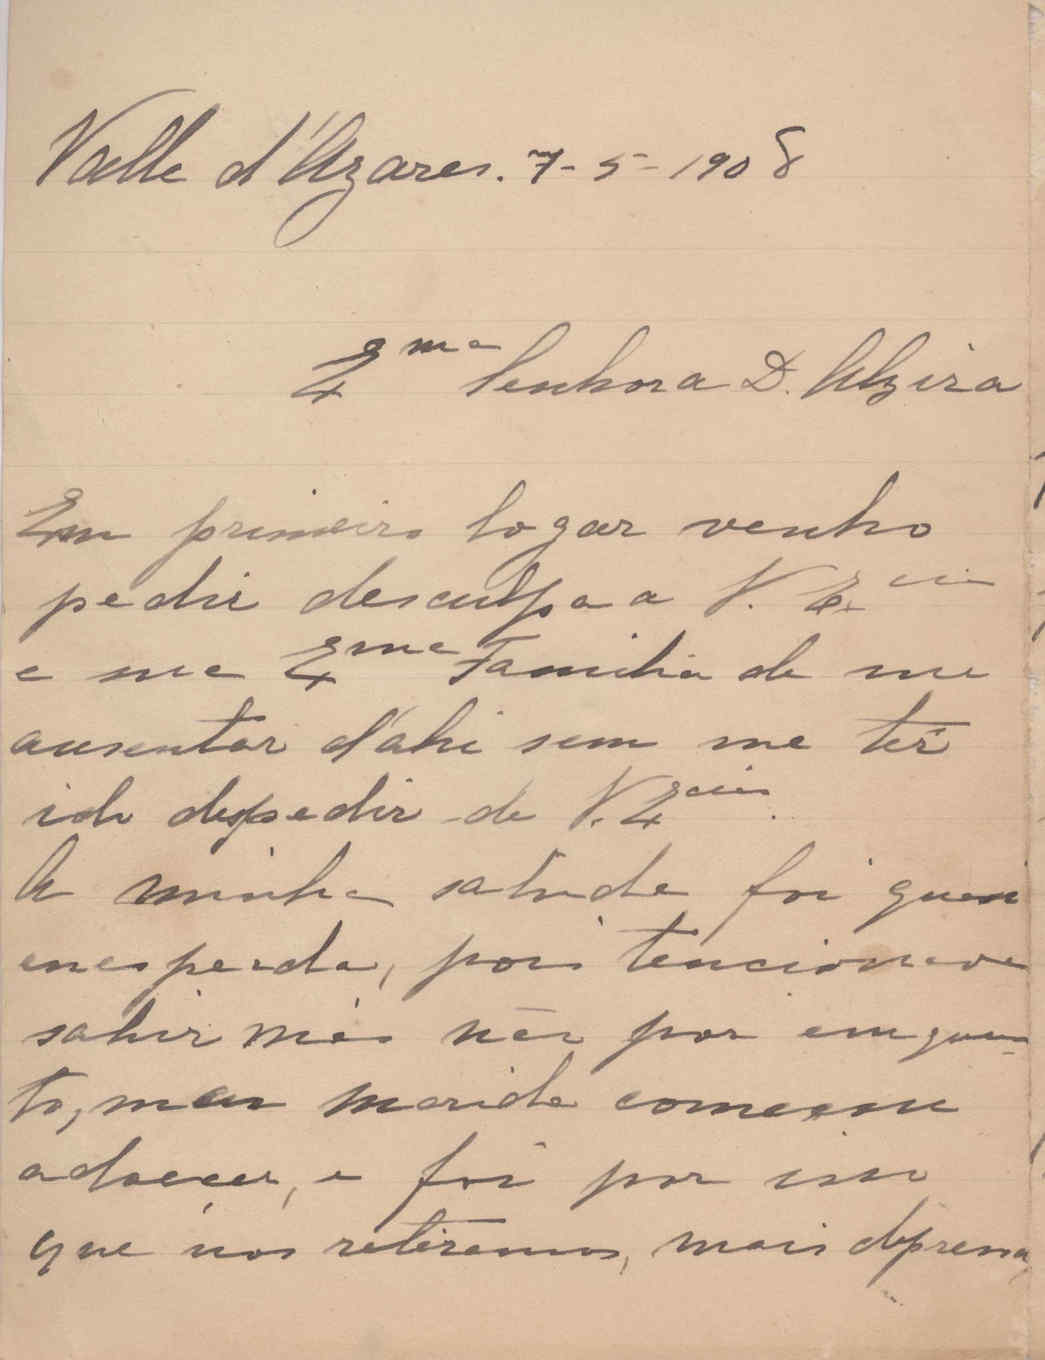 Valle d'Azares. 7-5-1908
Exma Senhora D. Alzira
Em primeiro logar venho
pedir desculpa a V. Excia
e sua Exma Familia de me
ausentar d'ahi sem me ter
ido despedir de V. Excias.
A minha sahida foi quasi
enesperada, pois tencionava
sahir mas não por emquan-
to, meu marido comessou
adoecer, e foi por isso
que nos retiramos, mais depressa,